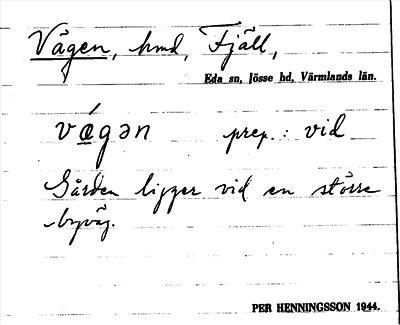 Vägen, hmd, Fjäll,
Eda sn, Jösse hd, Värmlands län.
vǽgən prep.: vid
Gården ligger vid en större
byväg.
PER HENNINGSSON 1944.